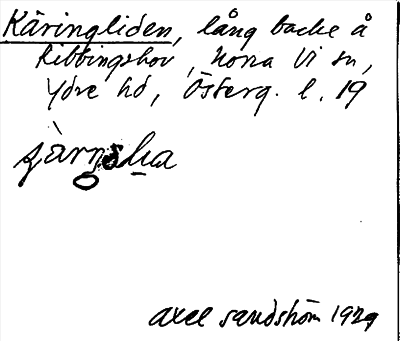 Käringliden, lång backe å
Ribbingshov, Norra Vi sn,
Ydre hd, Österg. l. 19
axel sandström 1929